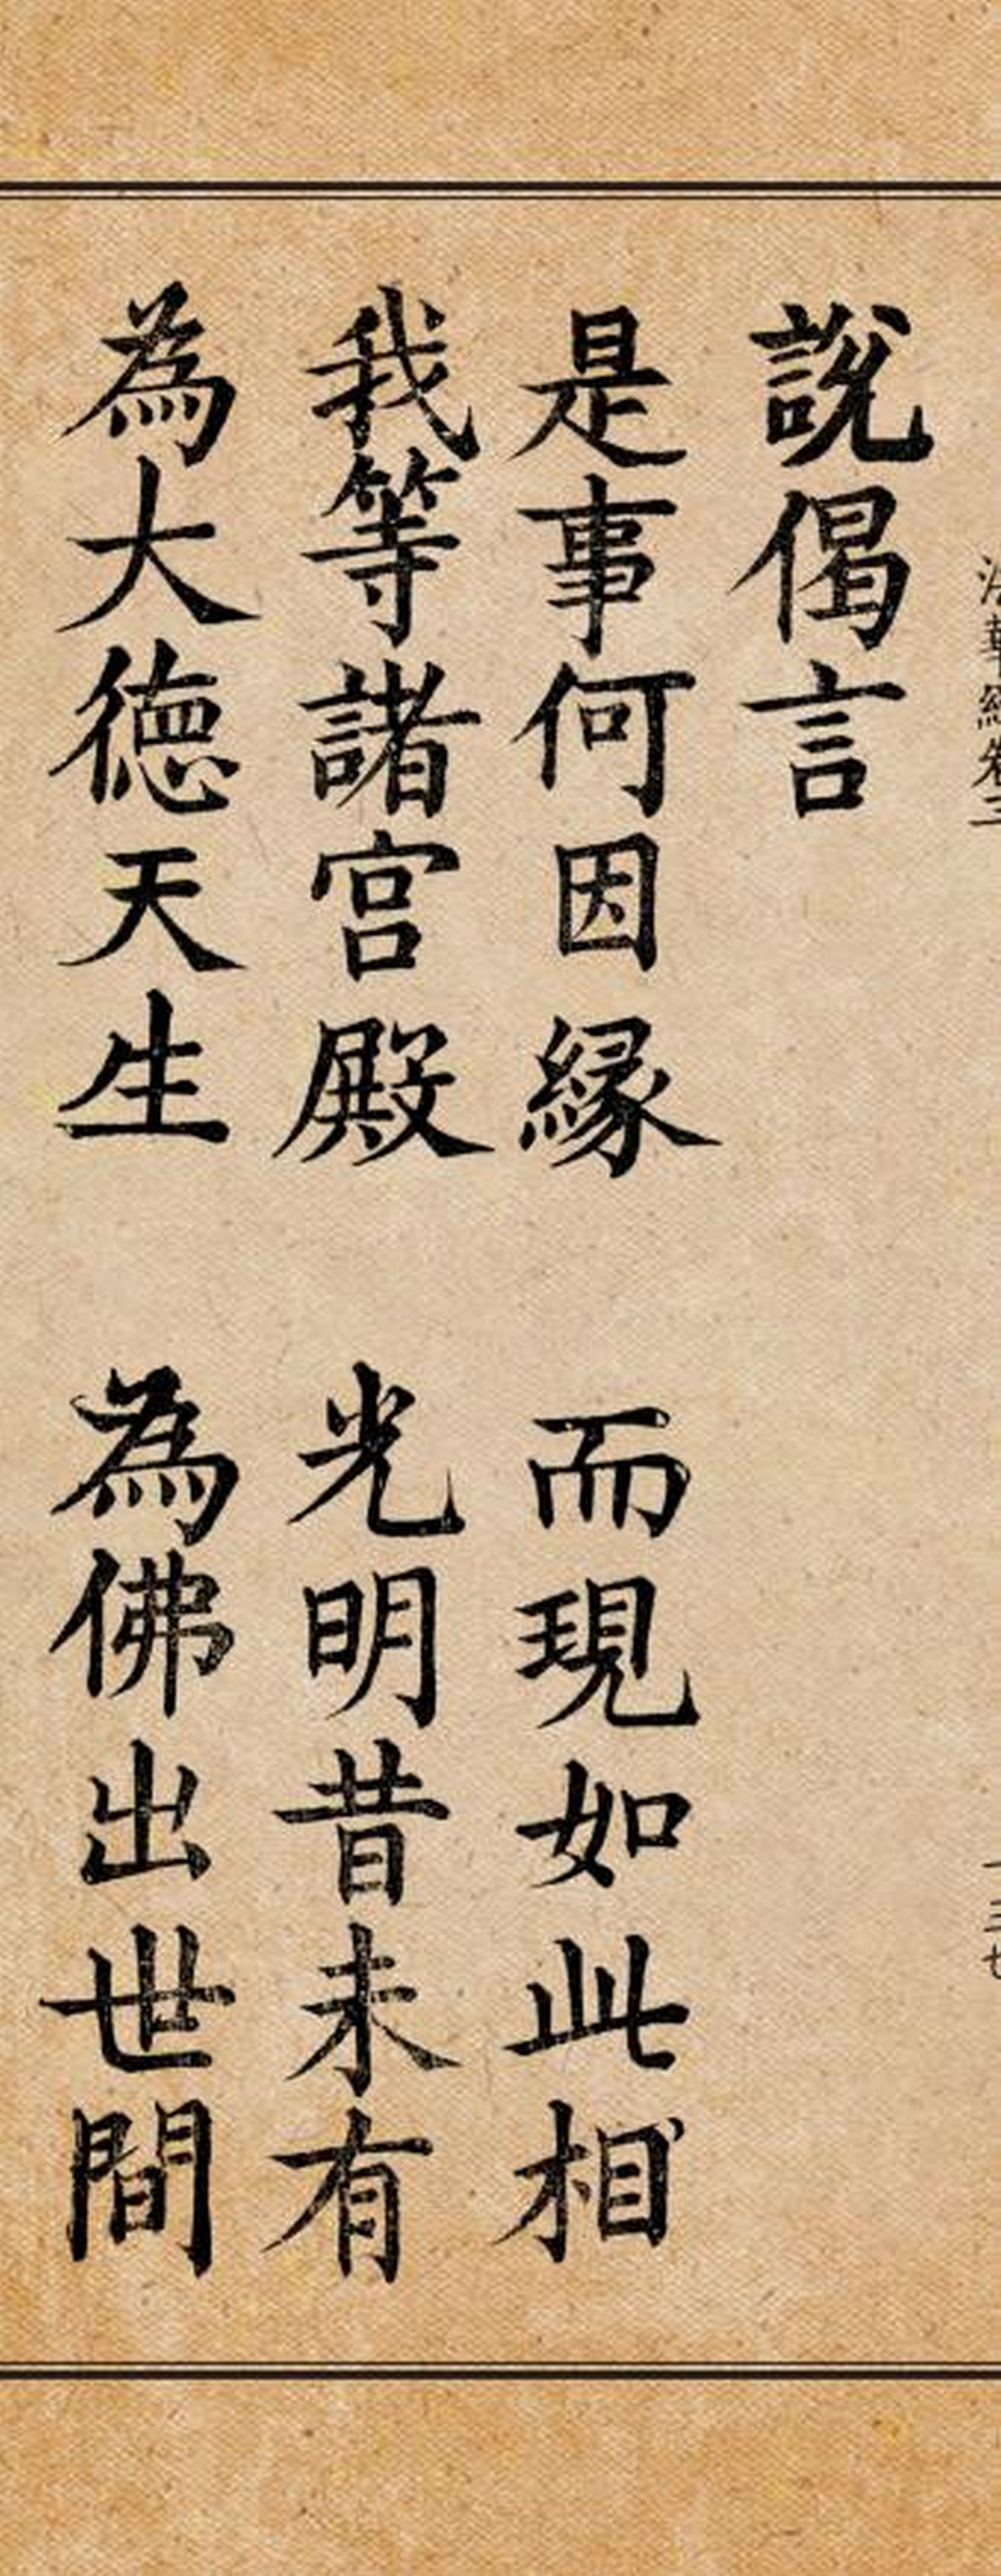 法華經卷三
一三七
說偈言
是事何因緣 而現如此相
我等諸宮殿 光明昔未有
為大德天生 為佛出世間